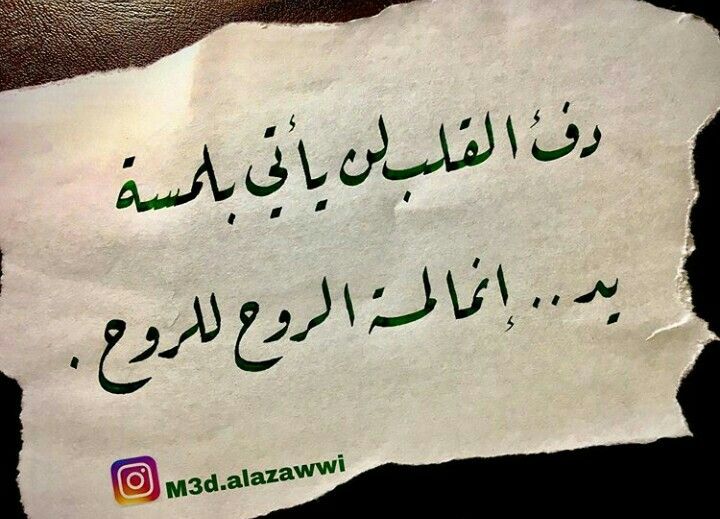 دفئ القلب لن يأتي بلمسة
يد .. إنما لمسة الروح للروح .
M3d.alazawwi